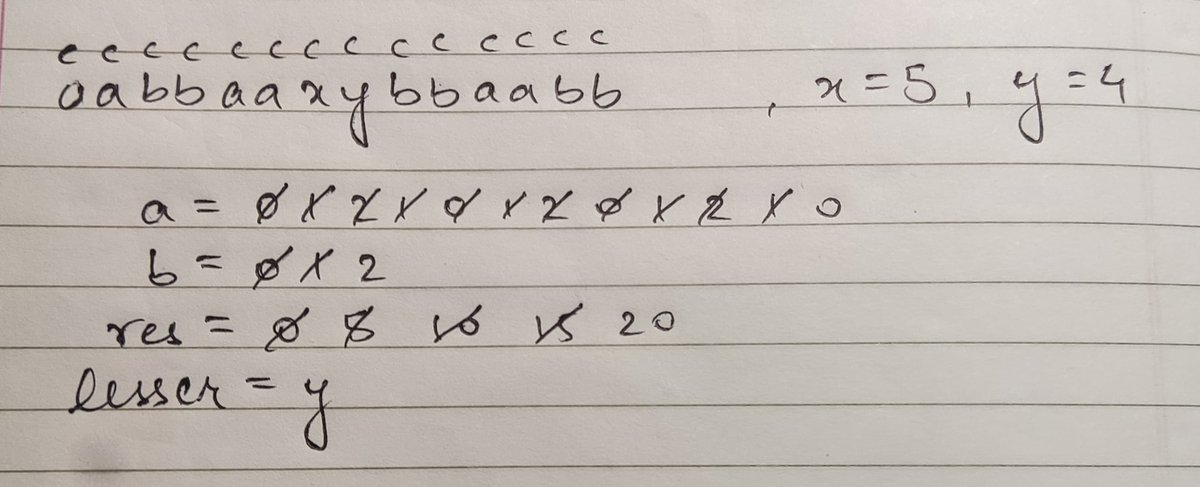 c c c c c c c c c c c c c c
aabbaaxybbaabb , x=5, y=4
a = 0 1 2 1 0 1 2 0 1 2 1 0
b = 0 1 2
res = 0 5 10 15 20
lesser = y